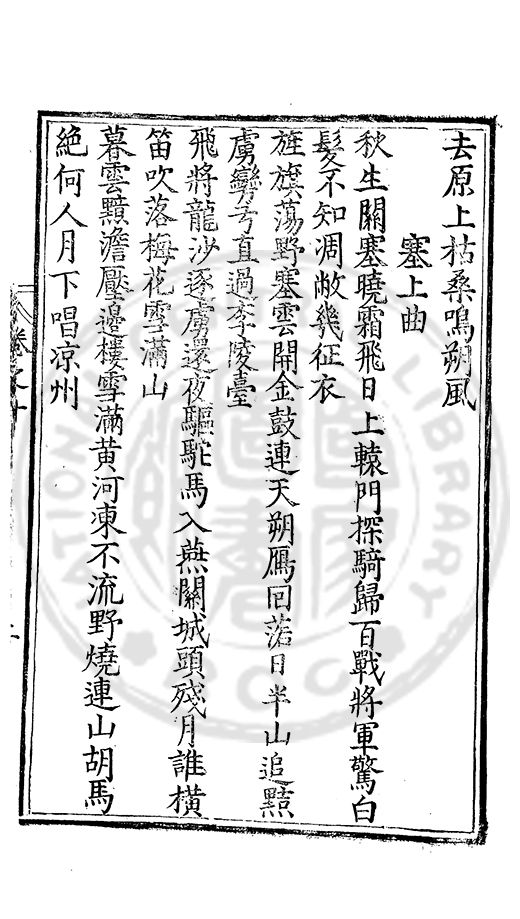 去原上枯桑鳴朔風
塞上曲
秋生關塞曉霜飛日上轅門探騎歸百戰將軍驚白
髮不知凋敝幾征衣
旌旗蕩野塞雲開金鼓連天朔鴈回落日半山追黠
虜彎弓直過李陵臺
飛將龍沙逐虜還夜驅駝馬入燕關城頭殘月誰橫
笛吹落梅花雪滿山
暮雲黯澹壓邊樓雪滿黄河凍不流野燒連山胡馬
絶何人月下唱凉州
卷之十